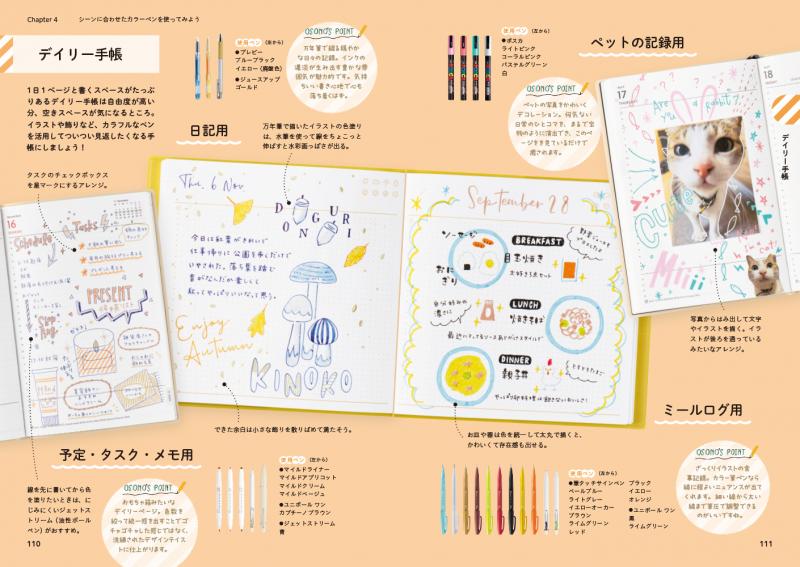 Chapter 4
シーンに合わせたカラーペンを使ってみよう
デイリー手帳
1日1ページと書くスペースがたっぷ
りあるデイリー手帳は自由度が高い
分、空きスペースが気になるところ。
イラストや飾りなど、カラフルなペン
を活用してついつい見返したくなる手
帳にしましょう！
使用ペン（左から）
●プレピー
ブルーブラック
イエロー（廃盤色）
●ジュースアップ
ゴールド
OSONO'S POINT
万年筆で綴る穏やか
な日々の記録。インクの
濃淡が生み出す豊かな雰
囲気が魅力的です。気持
ちいい書き心地で心も
落ち着くはず。
日記用
万年筆で描いたイラストの色塗り
は、水筆を使って線をちょこっと
伸ばすと水彩画っぽさが出る。
使用ペン（左から）
●ポスカ
ライトピンク
コーラルピンク
パステルグリーン
白
ペットの記録用
OSONO'S POINT
ペットの写真をかわいく
デコレーション。何気ない
日常のひとコマも、まるで宝
物のように演出でき、このペ
ージをまた見ているだけで
癒されます。
タスクのチェックボックス
を星マークにするアレンジ。
16
Schedule
Tasks
PRESENT
Thu, 6 Nov
DONGURI
今日は紅葉がきれいで
仕事帰りに公園を歩くだけで
いやされた。落ち葉を踏む
音がなんだか楽しくて
秋ってやっぱりいいなって思う。
Enjoy
Autumn
KINOKO
September 28
BREAKFAST
ソーセージ
おにぎり
目玉焼き
LUNCH
焼きそば
DINNER
親子丼
17
18
Are you a rabbit?
Cute
Miii
I'm Cat
デイリー手帳
写真からはみ出して文字
やイラストを描く。イラ
ストが後ろを通っている
みたいなアレンジ。
できた余白は小さな飾りを散りばめて満たそう。
お皿や器は色を統一して太丸で描くと、
かわいくて存在感も出せる。
ミールログ用
予定・タスク・メモ用
線を先に書いてから色
を塗りたいときは、に
じみにくいジェットスト
リーム（油性ボール
ペン）がおすすめ。
OSONO'S POINT
おもちゃ箱みたいな
デイリーページ。色数を
絞って統一感を出すことでゴ
チャゴチャした感じではなく、
洗練されたデザインテイス
トに仕上がります。
使用ペン（左から）
●マイルドライナー
マイルドアプリコット
マイルドクリーム
マイルドベージュ
●ユニボール ワン
カプチーノブラウン
●ジェットストリーム
青
使用ペン（左から）
●筆タッチサインペン
ペールブルー
ライトグレー
イエローオーカー
ブラウン
ライムグリーン
レッド
ブラック
イエロー
オレンジ
●ユニボール ワン
黒
ライムグリーン
OSONO'S POINT
ざっくりイラストの食
事記録。カラー筆ペンなら
線に程よいニュアンスが出て
くれます。細い線から太い
線まで筆圧で調整できる
のがいいですね。
110
111